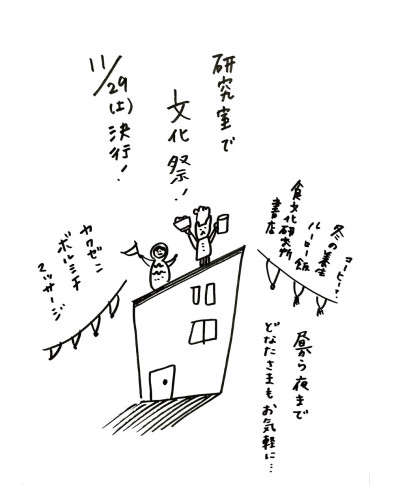 研究室で
文化祭!
11/29(土)決行!
コーヒーと、
冬の養生
ルーロー飯
食文化研究所
書店
ボルミチ
マッサージ
昼から夜まで
どなたさまもお気軽に…